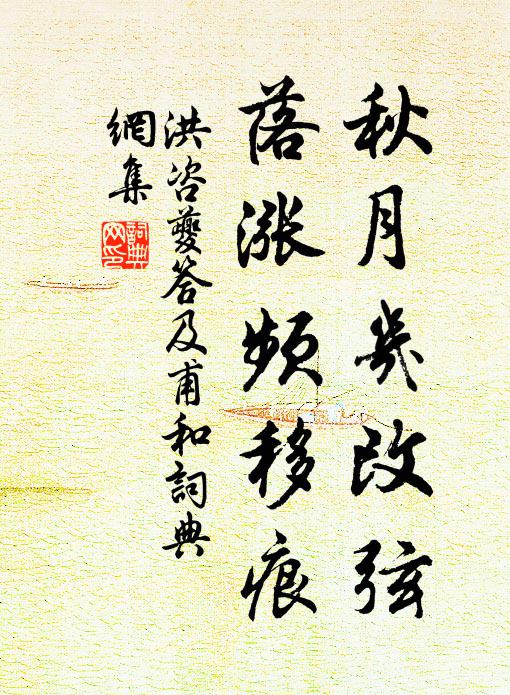 秋月几改弦
落涨频移痕
洪咨夔答及甫和詞典
網集
詞典
网印